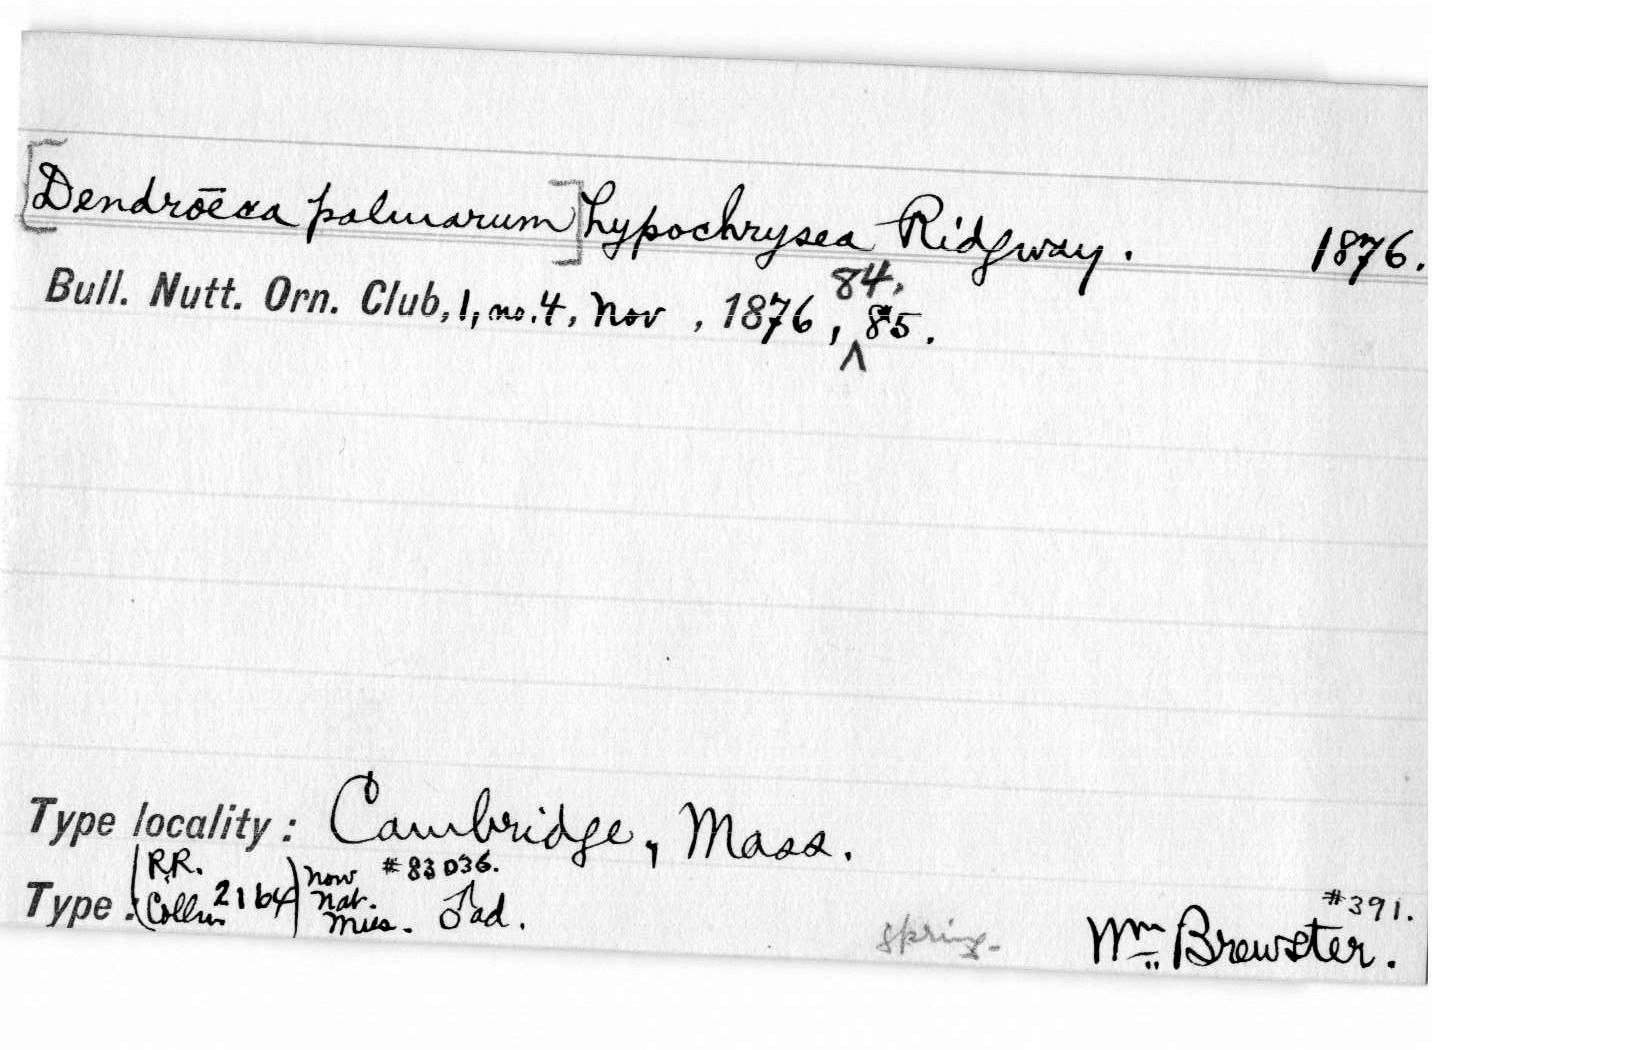 [Dendrōeca palmarum] hypochrysea Ridgway. 1876.
Bull. Nutt. Orn. Club, 1, no. 4, Nov , 1876, 84, 85.
Type locality: Cambridge, Mass.
Type: (R.R. Colln 2164) now Nat. Mus. #83036. ♂ ad. spring. Wm Brewster. #391.